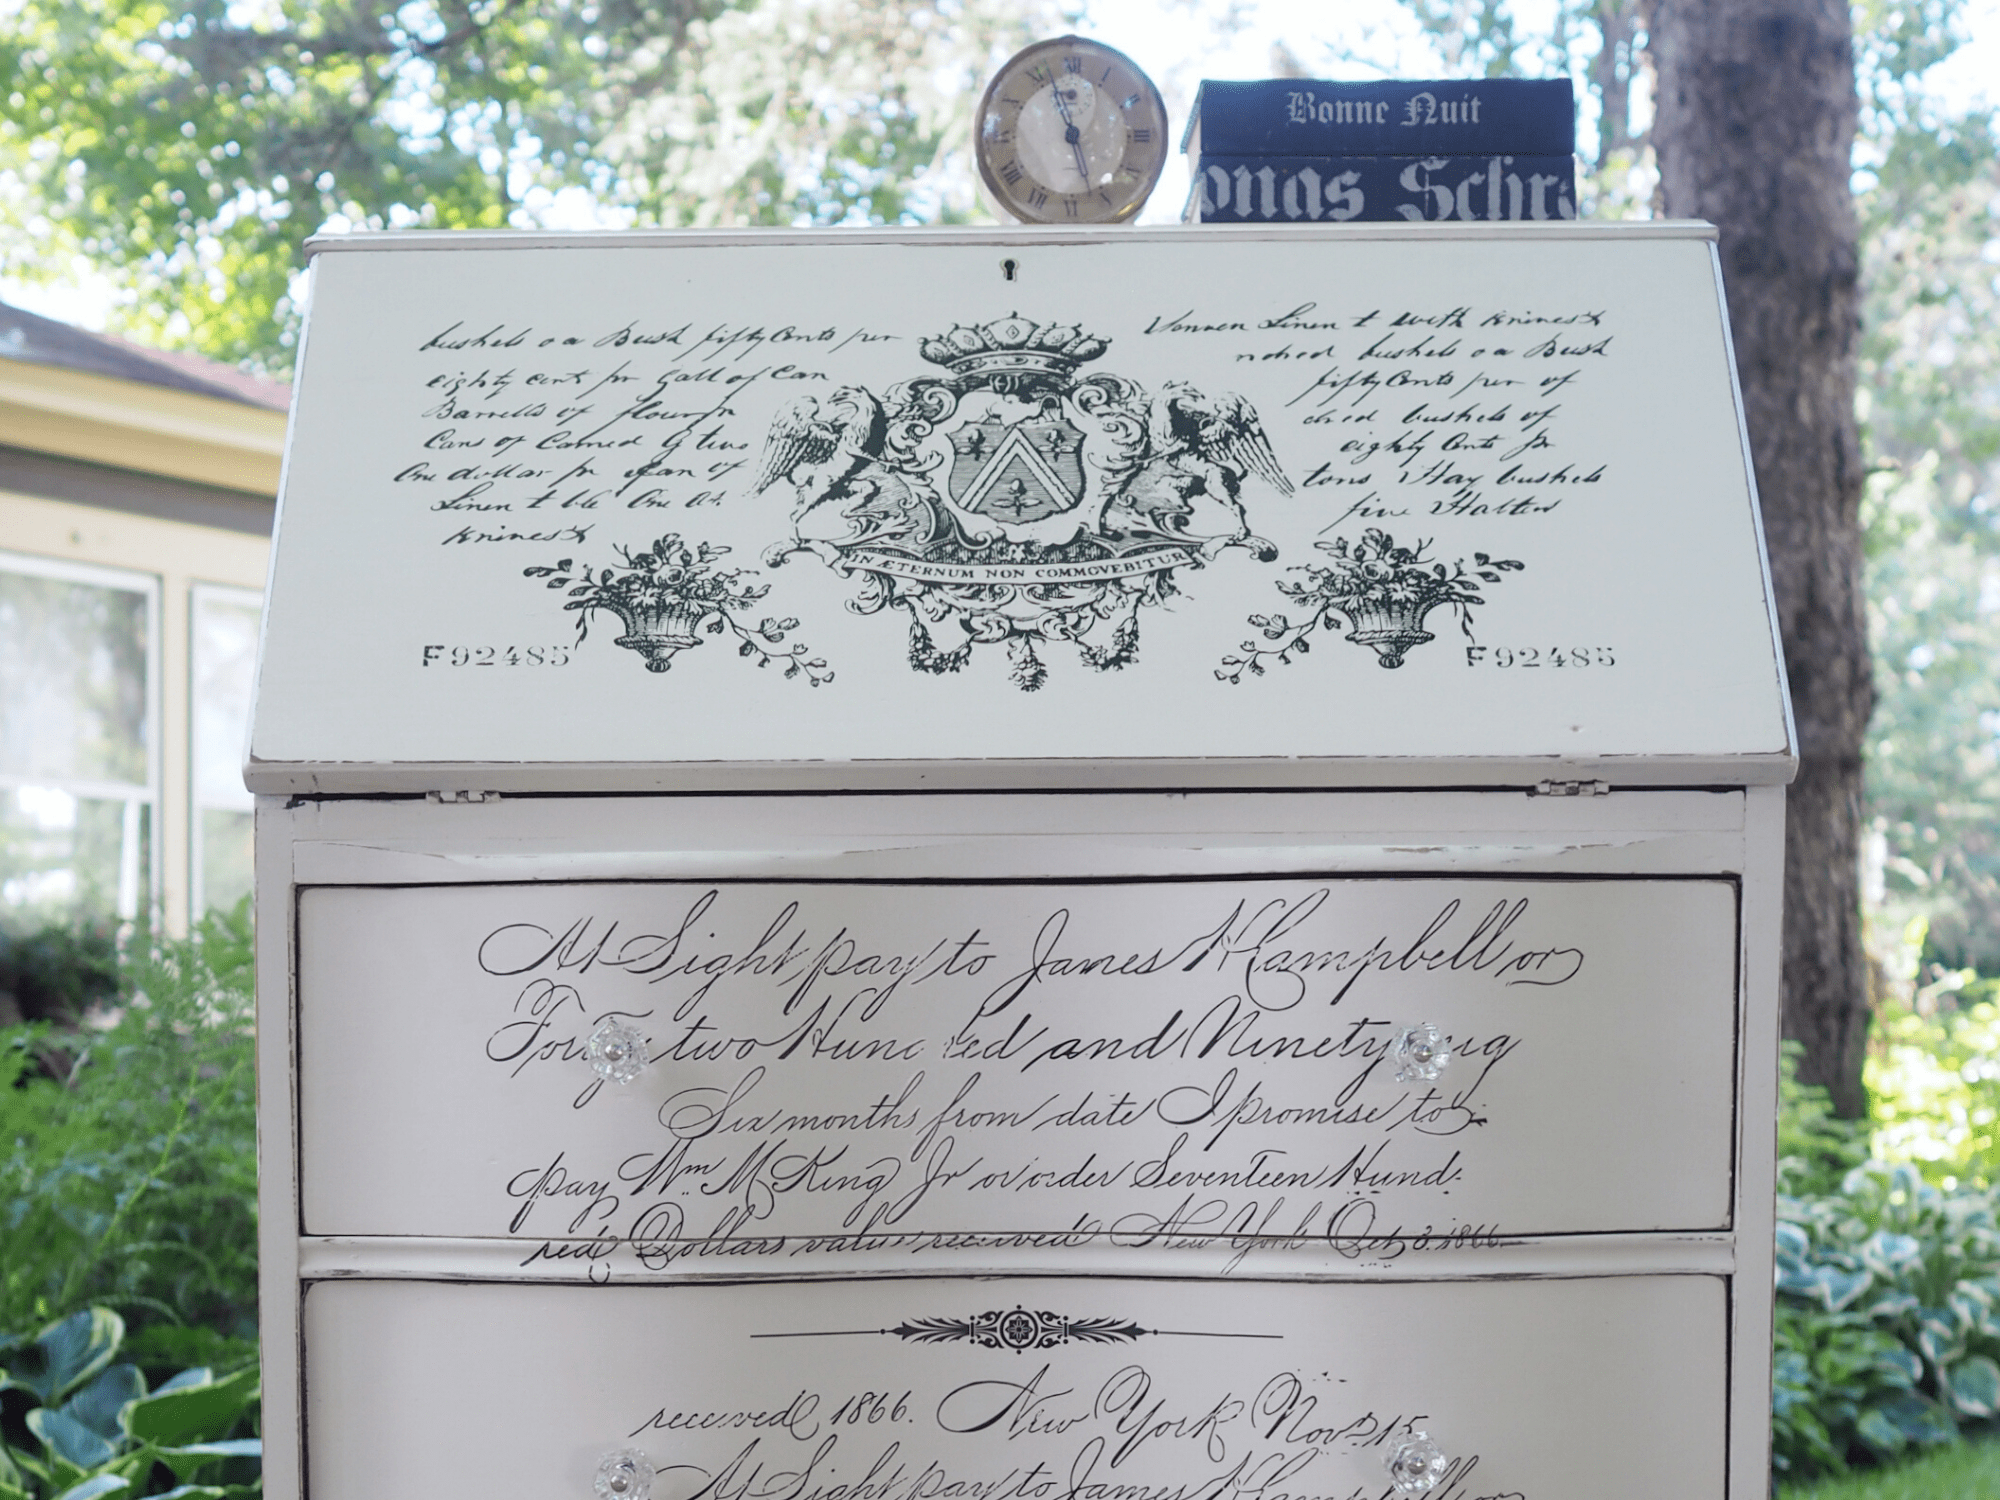 XII I II III IIII V VI VII VIII IX X XI
Bonne Nuit
onas Schr
bushels oa Bush fifty Cents per
eighty cent pr Gall of Can
Barrells of flour pr
Cans of Carned g two
One dollar pr Can of
Linen t ble One at
knines &
Vonnen Linen t with knines &
ndred bushels oa Bush
fifty Cents per of
dred bushels of
eighty Cents pr
tons Hay bushels
five Halters
IN ÆTERNUM NON COMMOVEBITUR
F92485
F92485
At Sight pay to James W Campbell or
Forty two Hundred and Ninety
Six months from date I promise to
pay Wm McKing Jr or order Seventeen Hund
red Dollars value received New York Oct 3. 1866
received 1866. New York Nov 15
At Sight pay to James Campbell or